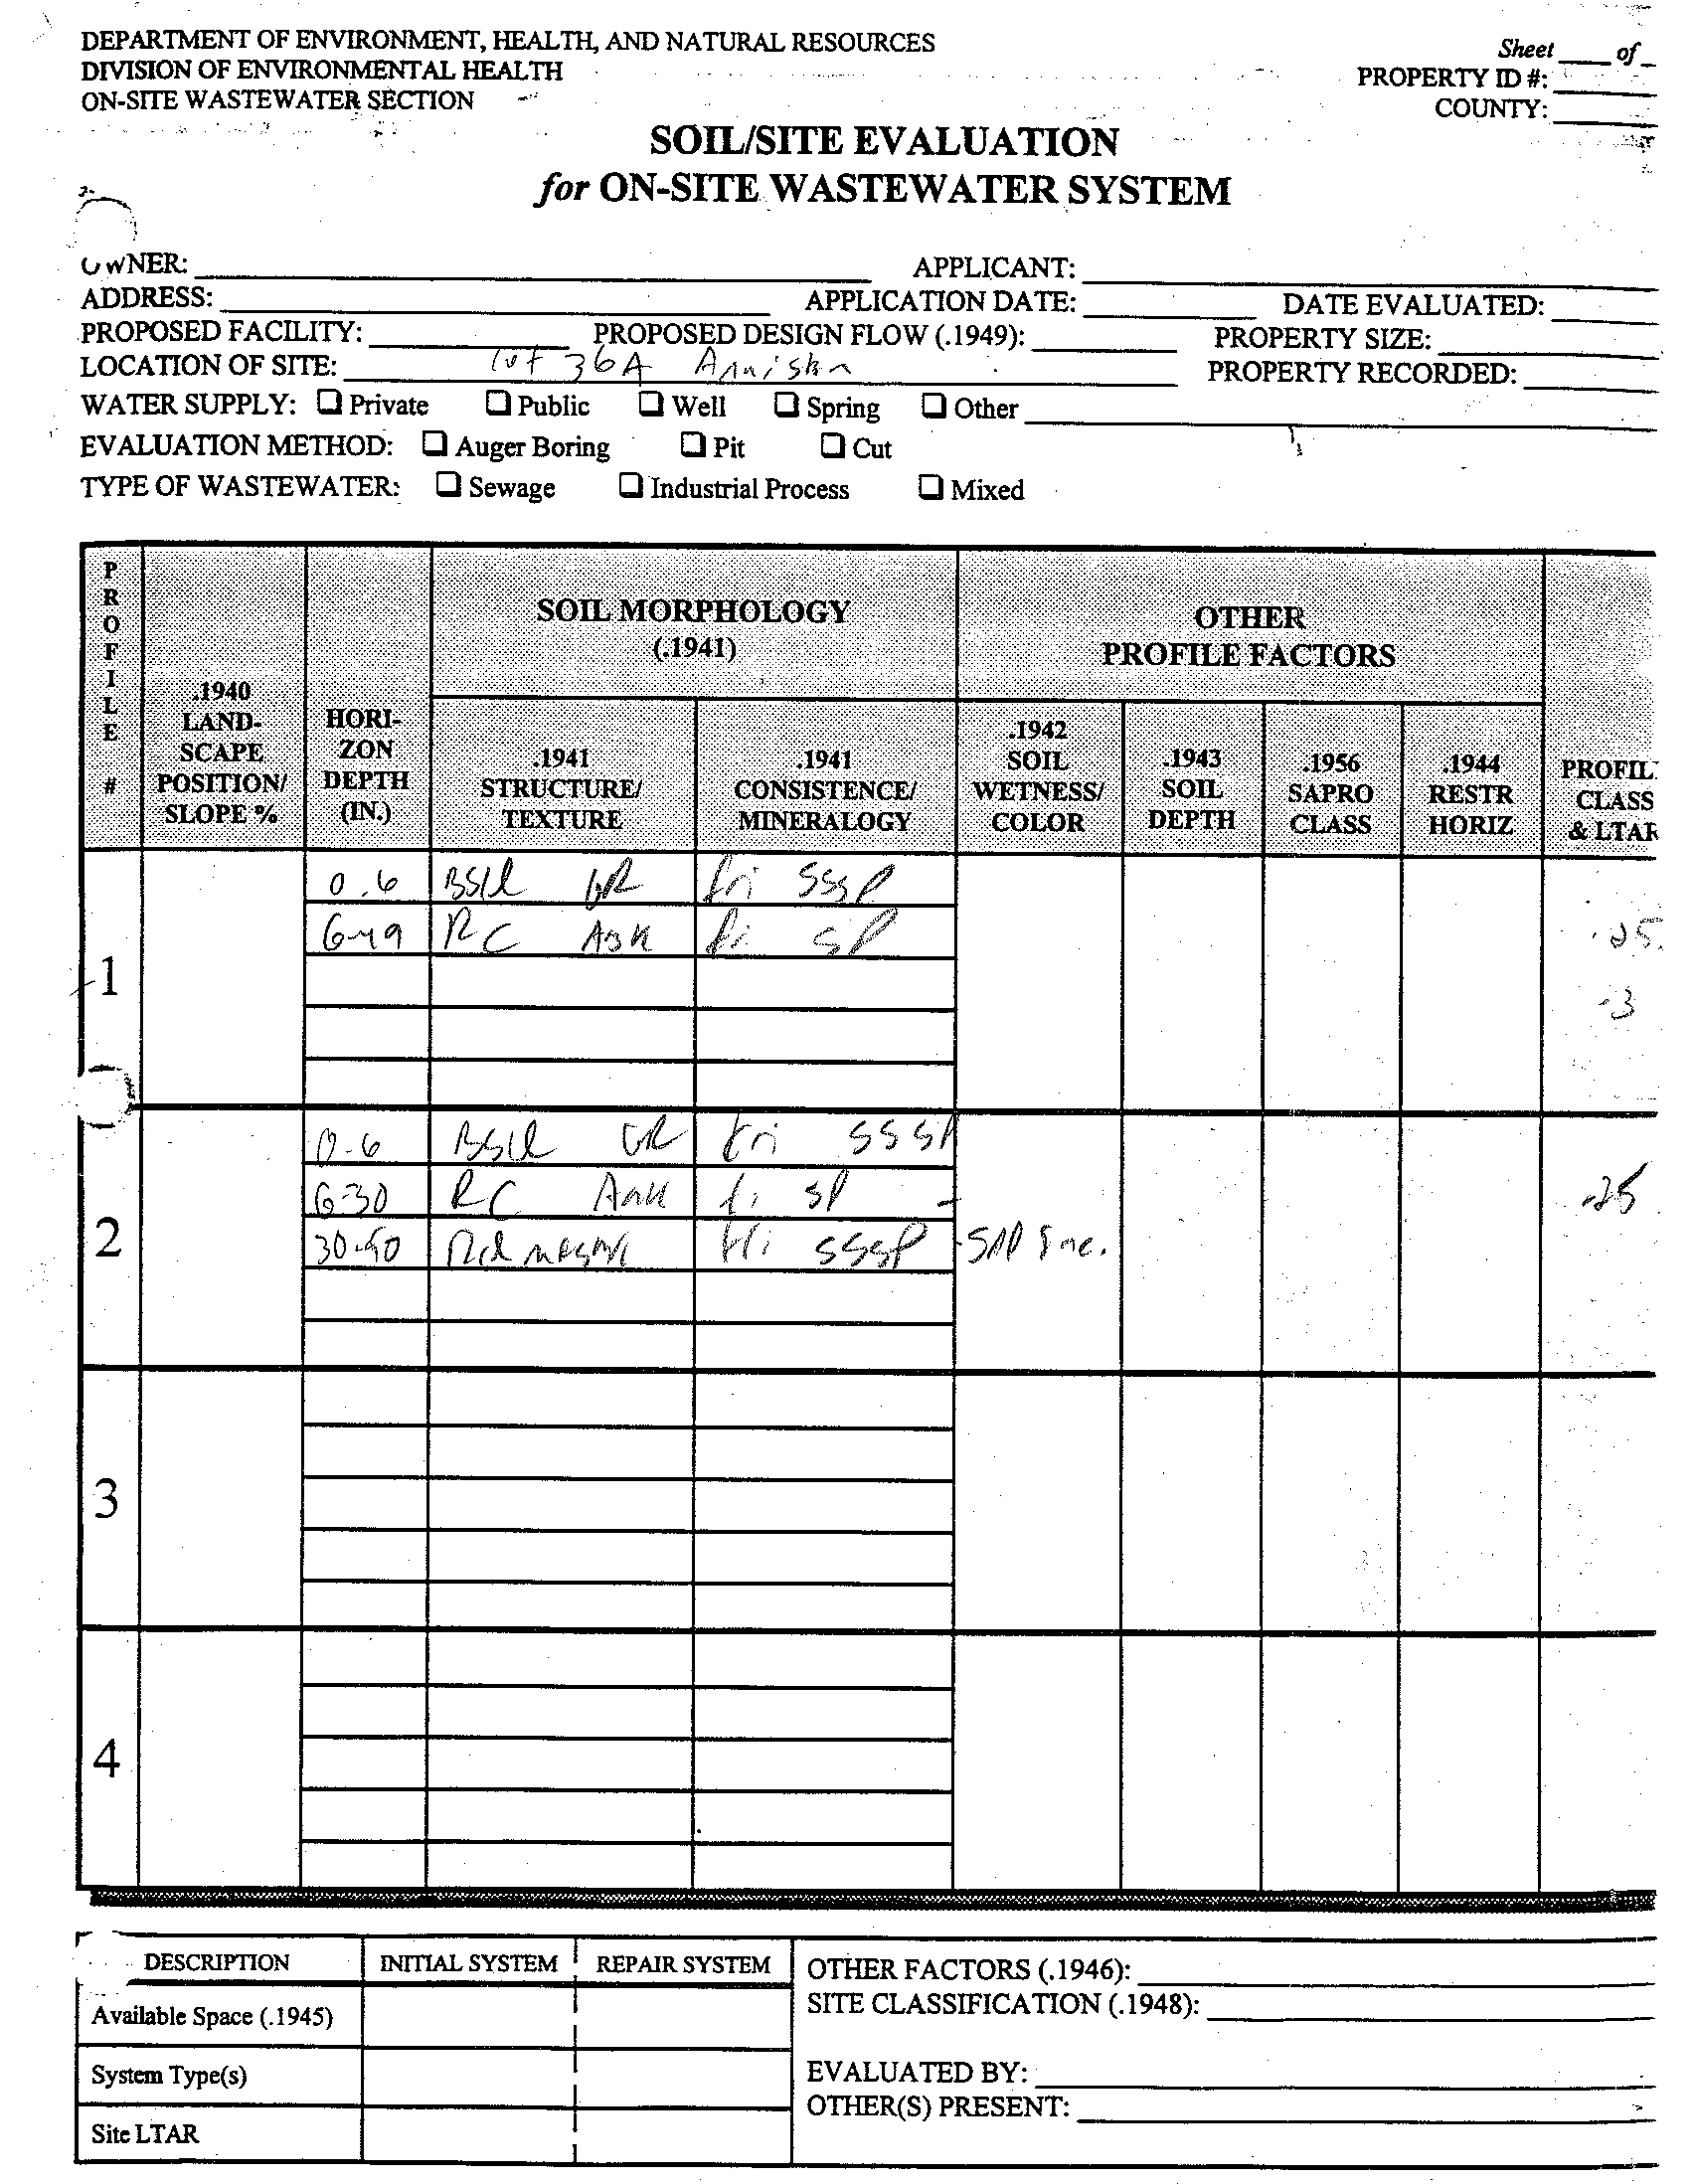 DEPARTMENT OF ENVIRONMENT, HEALTH, AND NATURAL RESOURCES
DIVISION OF ENVIRONMENTAL HEALTH
ON-SITE WASTEWATER SECTION
Sheet ____ of _
PROPERTY ID #:
COUNTY:
SOIL/SITE EVALUATION
for ON-SITE WASTEWATER SYSTEM
OWNER: APPLICANT:
ADDRESS: APPLICATION DATE: DATE EVALUATED:
PROPOSED FACILITY: PROPOSED DESIGN FLOW (.1949): PROPERTY SIZE:
LOCATION OF SITE: lot 36A Anniston PROPERTY RECORDED:
WATER SUPPLY: ❑ Private ❑ Public ❑ Well ❑ Spring ❑ Other
EVALUATION METHOD: ❑ Auger Boring ❑ Pit ❑ Cut
TYPE OF WASTEWATER: ❑ Sewage ❑ Industrial Process ❑ Mixed
PROFILE #
.1940 LAND-SCAPE POSITION/ SLOPE %
HORI-ZON DEPTH (IN.)
SOIL MORPHOLOGY (.1941)
.1941 STRUCTURE/ TEXTURE
.1941 CONSISTENCE/ MINERALOGY
OTHER PROFILE FACTORS
.1942 SOIL WETNESS/ COLOR
.1943 SOIL DEPTH
.1956 SAPRO CLASS
.1944 RESTR HORIZ
PROFIL CLASS & LTAR
1
0-6 GR fri SSSP
6-49 RC ABK fi SP .25
.3
2
0-6 GR fri SSSP
6-30 RC fi SP .25
fri SSSP
3
4
DESCRIPTION INITIAL SYSTEM REPAIR SYSTEM
Available Space (.1945)
System Type(s)
Site LTAR
OTHER FACTORS (.1946):
SITE CLASSIFICATION (.1948):
EVALUATED BY:
OTHER(S) PRESENT: